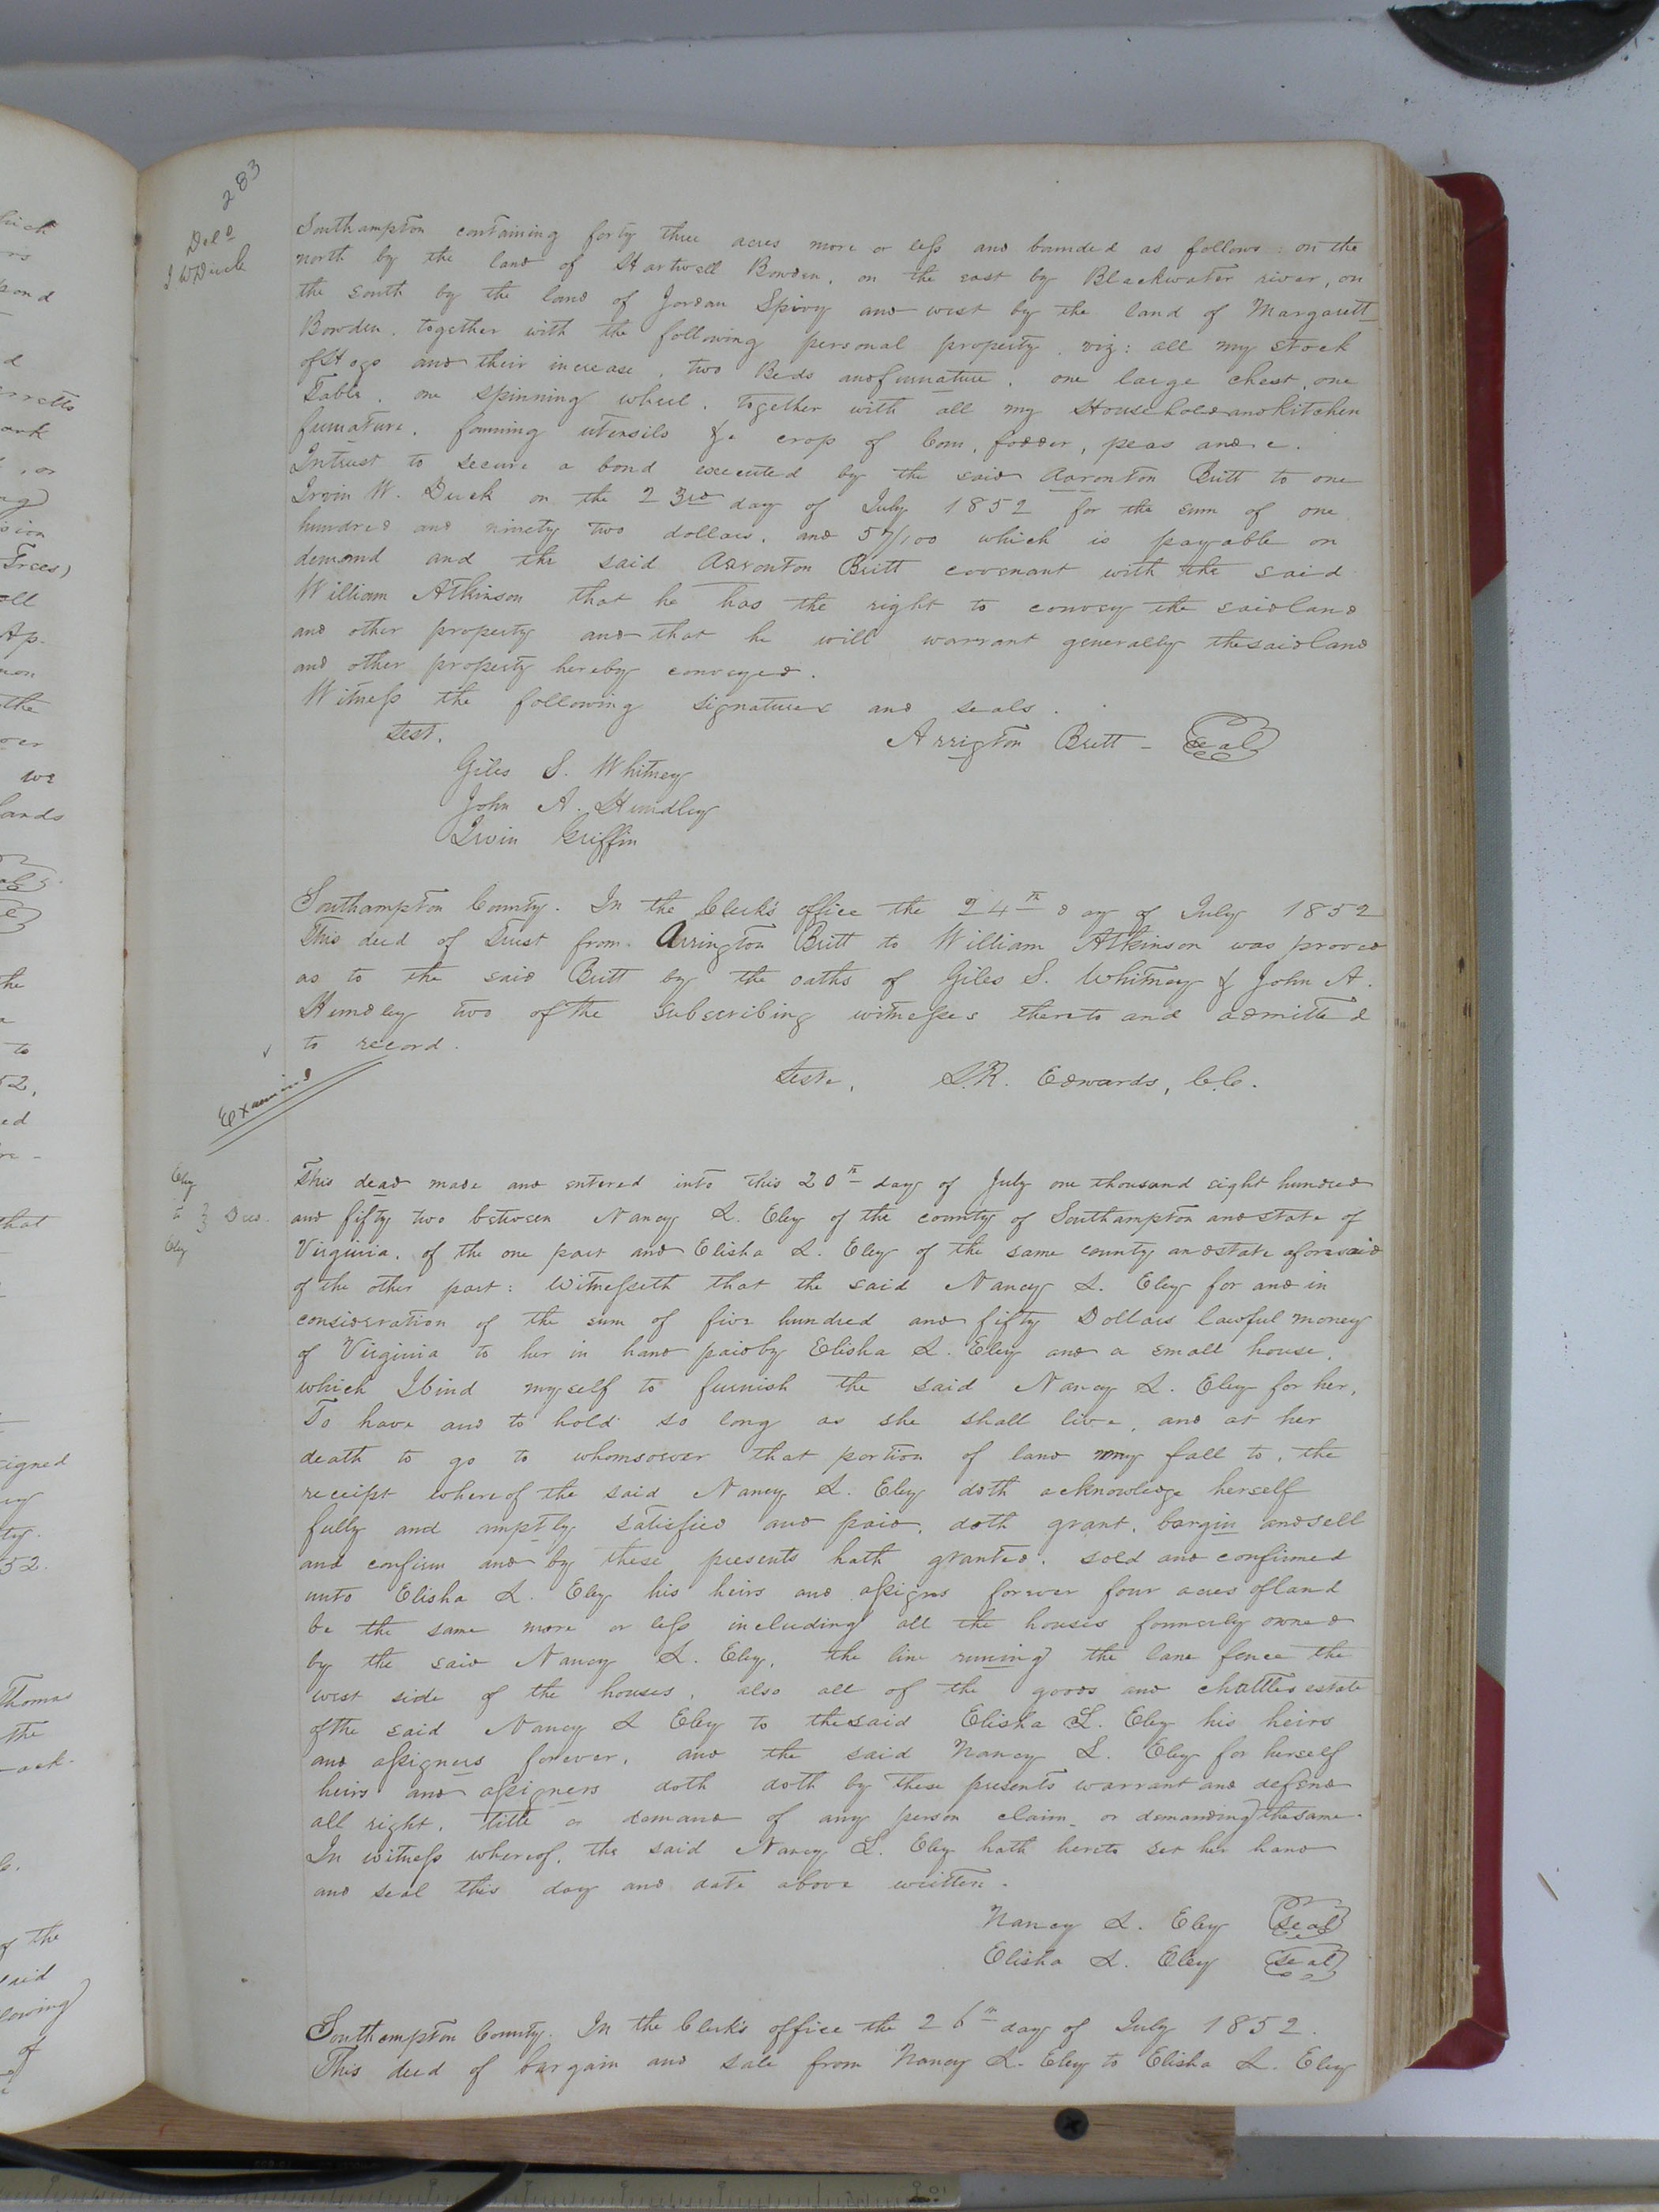 283
Deld
I W Duck
Southampton containing forty three acres more or less and bounded as follows: on the
north by the land of Hartwell Bowden, on the east by Blackwater river, on
the south by the land of Jordan Spivy and west by the land of Margarett
Bowden, together with the following personal property, viz: all my stock
of Hogs and their increase, two Beds and furnature, one large chest, one
Table, one spinning wheel, together with all my Household and Kitchen
furnature, farming utensils &c crop of Corn, fodder, peas and c.
Intrust to secure a bond executed by the said Aaronton Britt to one
Irvin W. Duck on the 23rd day of July 1852 for the sum of one
hundred and ninety two dollars, and 57/100 which is payable on
demand and the said Aaronton Britt covenant with the said
William Atkinson that he has the right to convey the said land
and other property and that he will warrant generally the said land
and other property hereby conveyed.
Witness the following signatures and seals.
Test. Arrington Britt - Seal
Giles S. Whitney
John A. Hundley
Irvin Griffin
Southampton County. In the Clerk's office the 24th day of July 1852
This deed of Trust from Arrington Britt to William Atkinson was proved
as to the said Britt by the oaths of Giles S. Whitney & John A.
Hundley two of the subscribing witnesses thereto and admitted
to record.
Teste, L.R. Edwards, C.C.
Examined
Eley
to Deed
Eley
This dead made and entered into this 20th day of July one thousand eight hundred
and fifty two between Nancy L. Eley of the county of Southampton and state of
Virginia, of the one part and Elisha L. Eley of the same county and state aforesaid
of the other part: Witnesseth that the said Nancy L. Eley for and in
consideration of the sum of five hundred and fifty Dollars lawful money
of Virginia to her in hand paid by Elisha L. Eley and a small house,
which I bind myself to furnish the said Nancy L. Eley for her,
To have and to hold so long as she shall live, and at her
death to go to whomsoever that portion of land may fall to, the
receipt whereof the said Nancy L. Eley doth acknowledge herself
fully and amptly satisfied and paid, doth grant, bargin and sell
and confirm and by these presents hath granted, sold and confirmed
unto Elisha L. Eley his heirs and assigns forever four acres of land
be the same more or less including all the houses formerly owned
by the said Nancy L. Eley, the line runing the lane fence the
west side of the houses, also all of the goods and chattles estate
of the said Nancy L Eley to the said Elisha L. Eley his heirs
and assigners forever, and the said Nancy L. Eley for herself
heirs and assigners doth doth by these presents warrant and defend
all right, title or demand of any person claim or demanding the same.
In witness whereof, the said Nancy L. Eley hath hereto set her hand
and seal this day and date above written.
Nancy L. Eley Seal
Elisha L. Eley Seal
Southampton County. In the Clerk's office the 26th day of July 1852.
This deed of bargain and sale from Nancy L. Eley to Elisha L. Eley